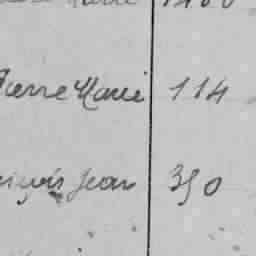 Pierre Marie 114
François Jean 350